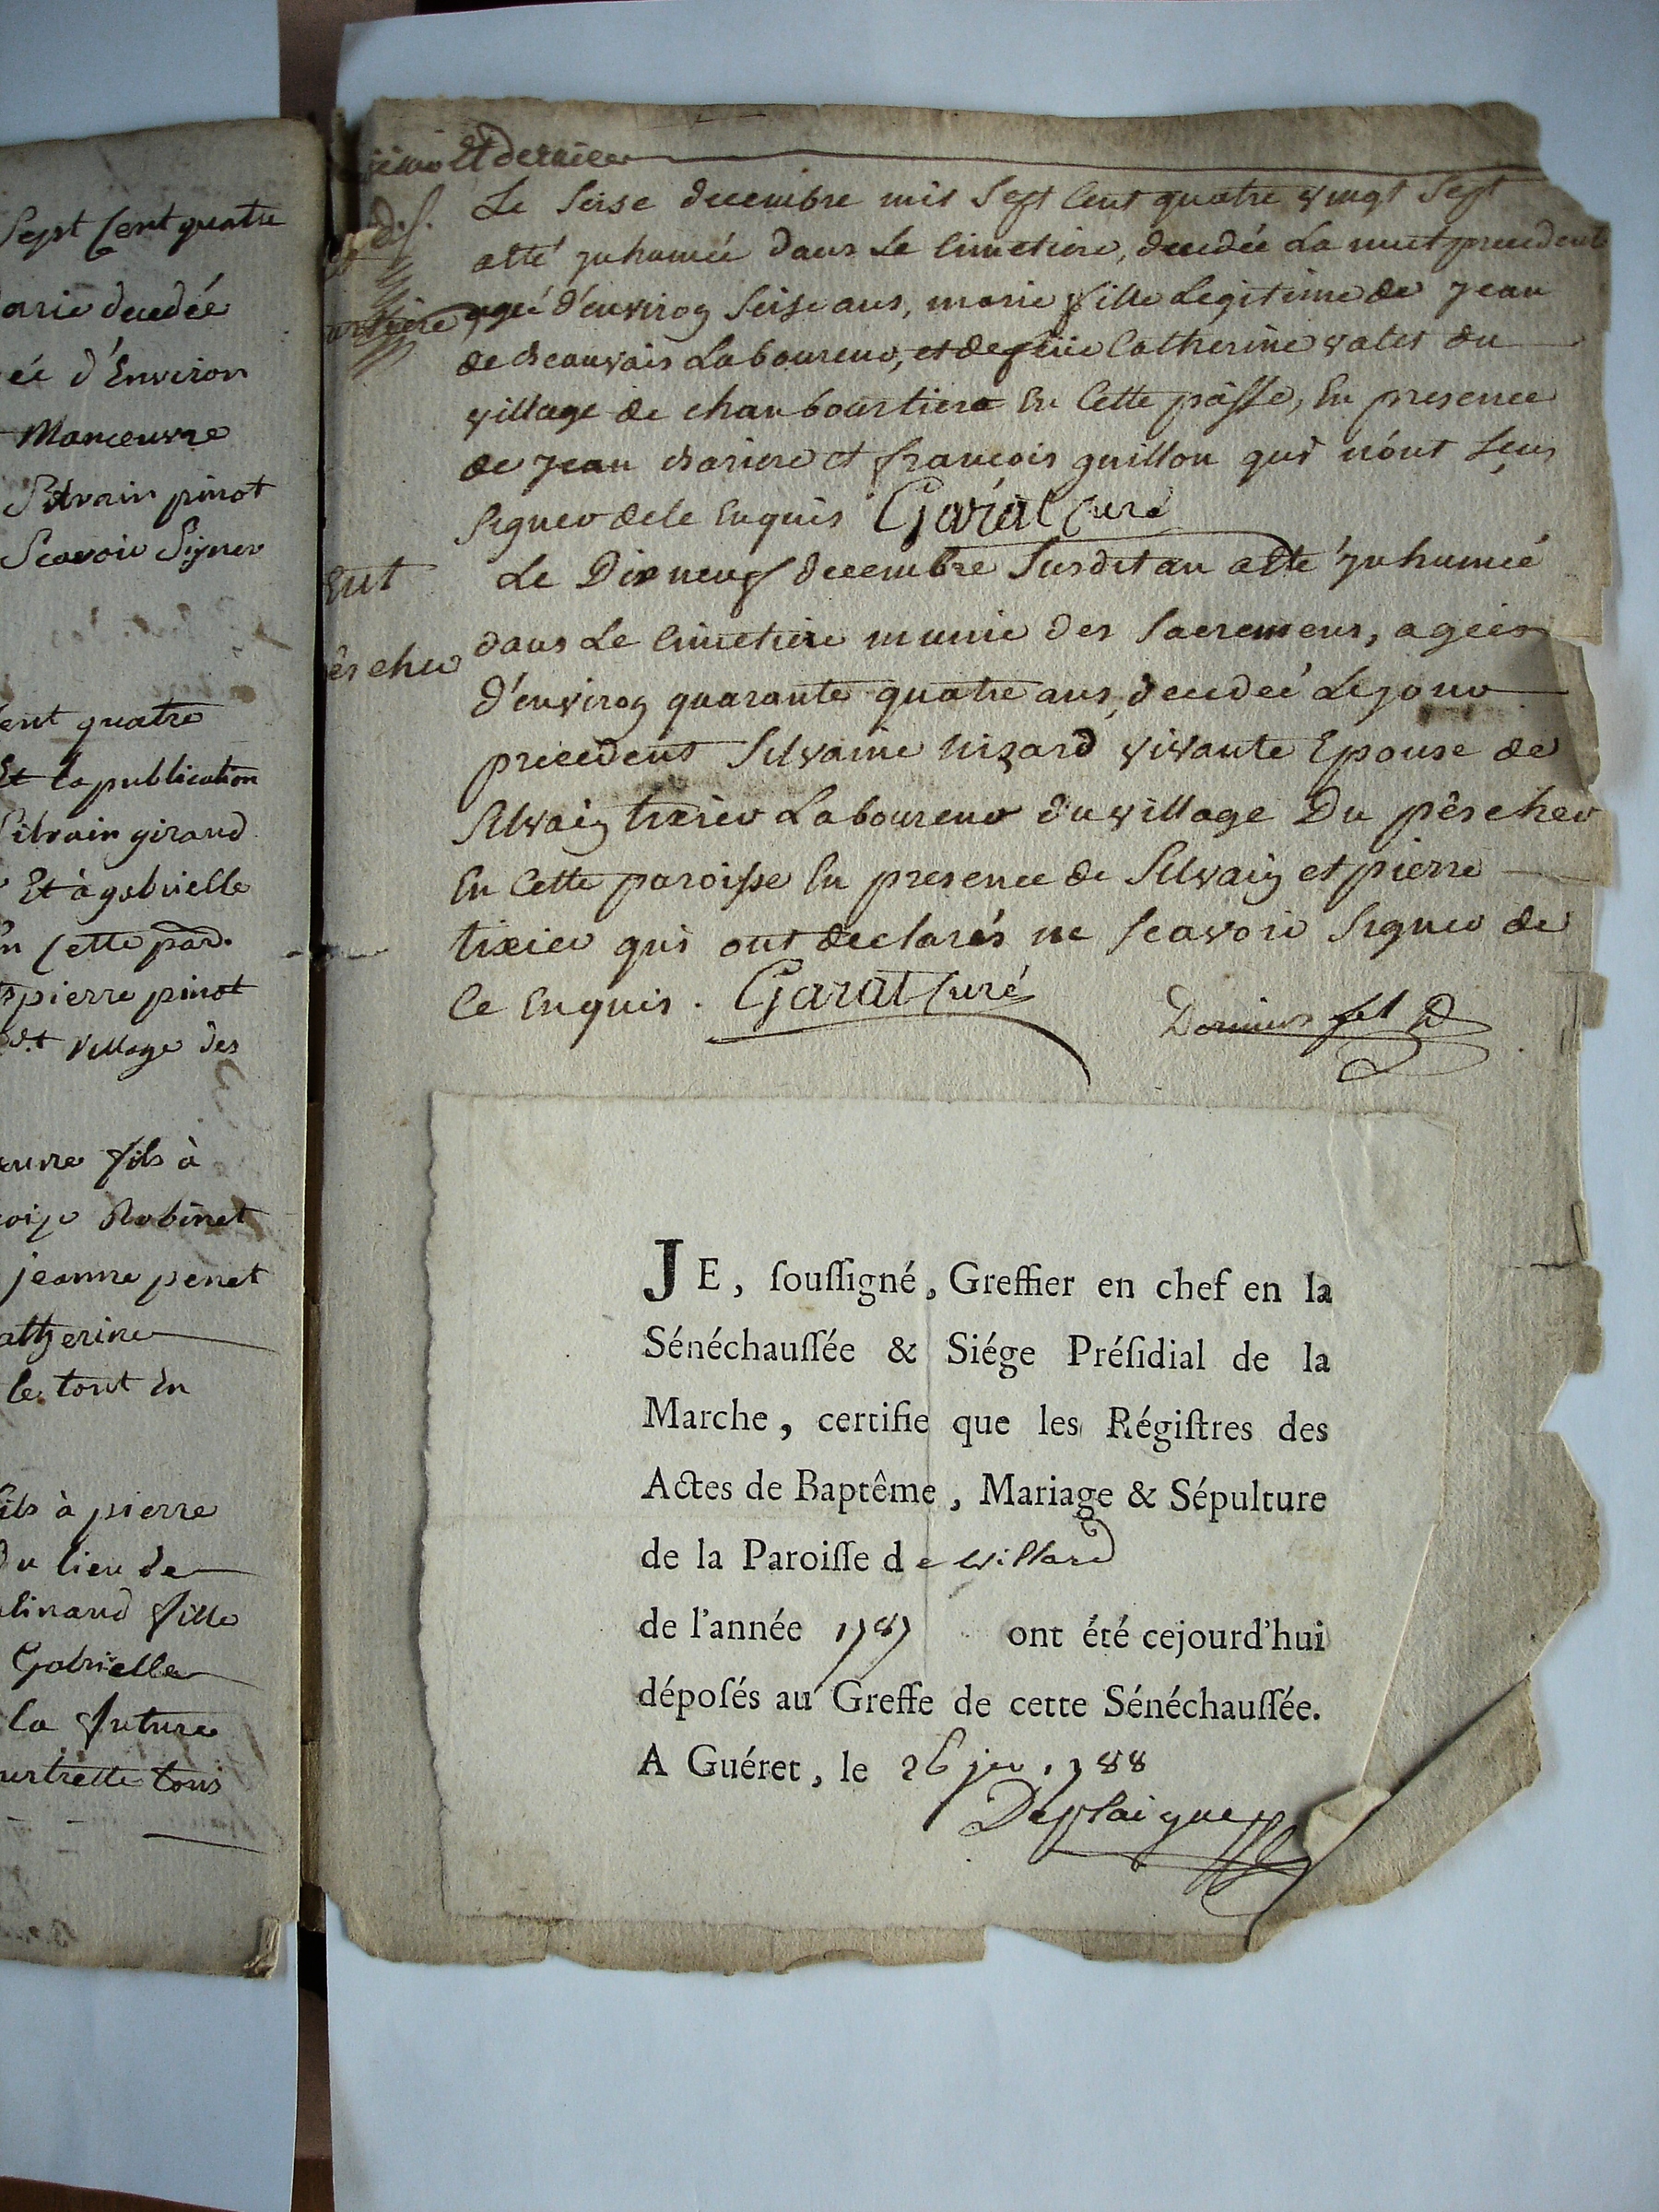 Sept Cent quatre
decedée
d'Environ
Manœuvre
Silvain pinot
Scavoir Signer
quatre
Et la publication
Silvain giraud
Et à gabrielle
Cette par.
pierre pinot
Village des
fils à
Robinet
jeanne penet
le tout En
à pierre
Du lieu de
fille
Gabrielle
la future
tous
Et dernier
Le seise decembre mil sept Cent quatre vingt sept
a eté inhumée dans Le Cimetiere, decedée La nuit precedente
agée d'environ seise ans, marie fille Legitime de jean
de beauvais Laboureur, et de feüe Catherine valet du
village de chanbourtiere En Cette pâsse, En presence
de jean bariere et francois guillon qui n'ont sçus
signer de Ce Enquis Garat Curé
Le Dix neuf decembre susdit an a eté inhumée
dans Le Cimetiere munie des sacremens, ageés
d'environ quarante quatre ans, decedeé Le jour
precedent Silvaine nizard vivante Epouse de
Silvain tixier Laboureur du village Du pêscher
En Cette paroisse En presence de Silvain et pierre
tixier qui ont declarés ne scavoir signer de
Ce Enquis. Garat Curé
JE, souſſigné, Greffier en chef en la
Sénéchauſſée & Siége Préſidial de la
Marche, certifie que les Régiſtres des
Actes de Baptême, Mariage & Sépulture
de la Paroiſſe de villard
de l'année 1787 ont été cejourd'hui
dépoſés au Greffe de cette Sénéchauſſée.
A Guéret, le 26 jer. 1788